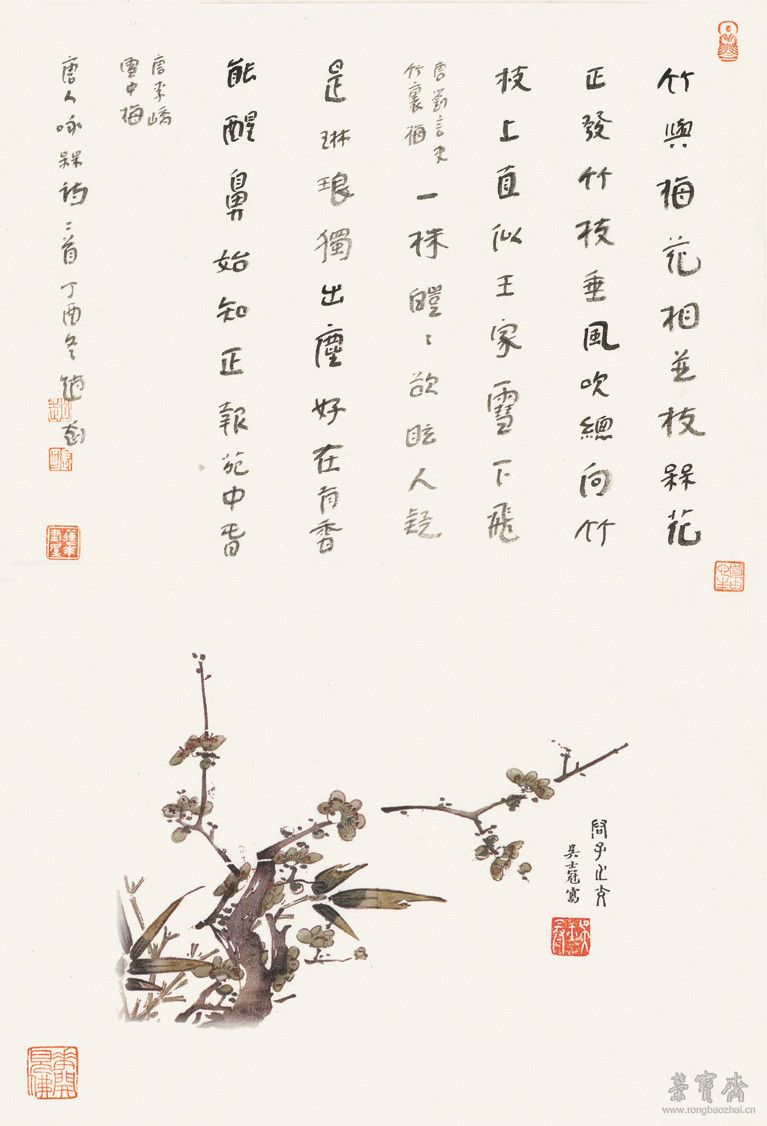 竹與梅花相並枝槑花
正發竹枝垂風吹總向竹
枝上直似王家雪下飛
唐劉言史
竹裏梅
一株皚〻欲眩人疑
是琳琅獨出塵好在有香
能醒鼻始知正報苑中春
唐李嶠
雪中梅
唐人咏槑詩二首丁酉冬
君子之友
吳士冠寫
榮寶齋
www.rongbaozhai.cn